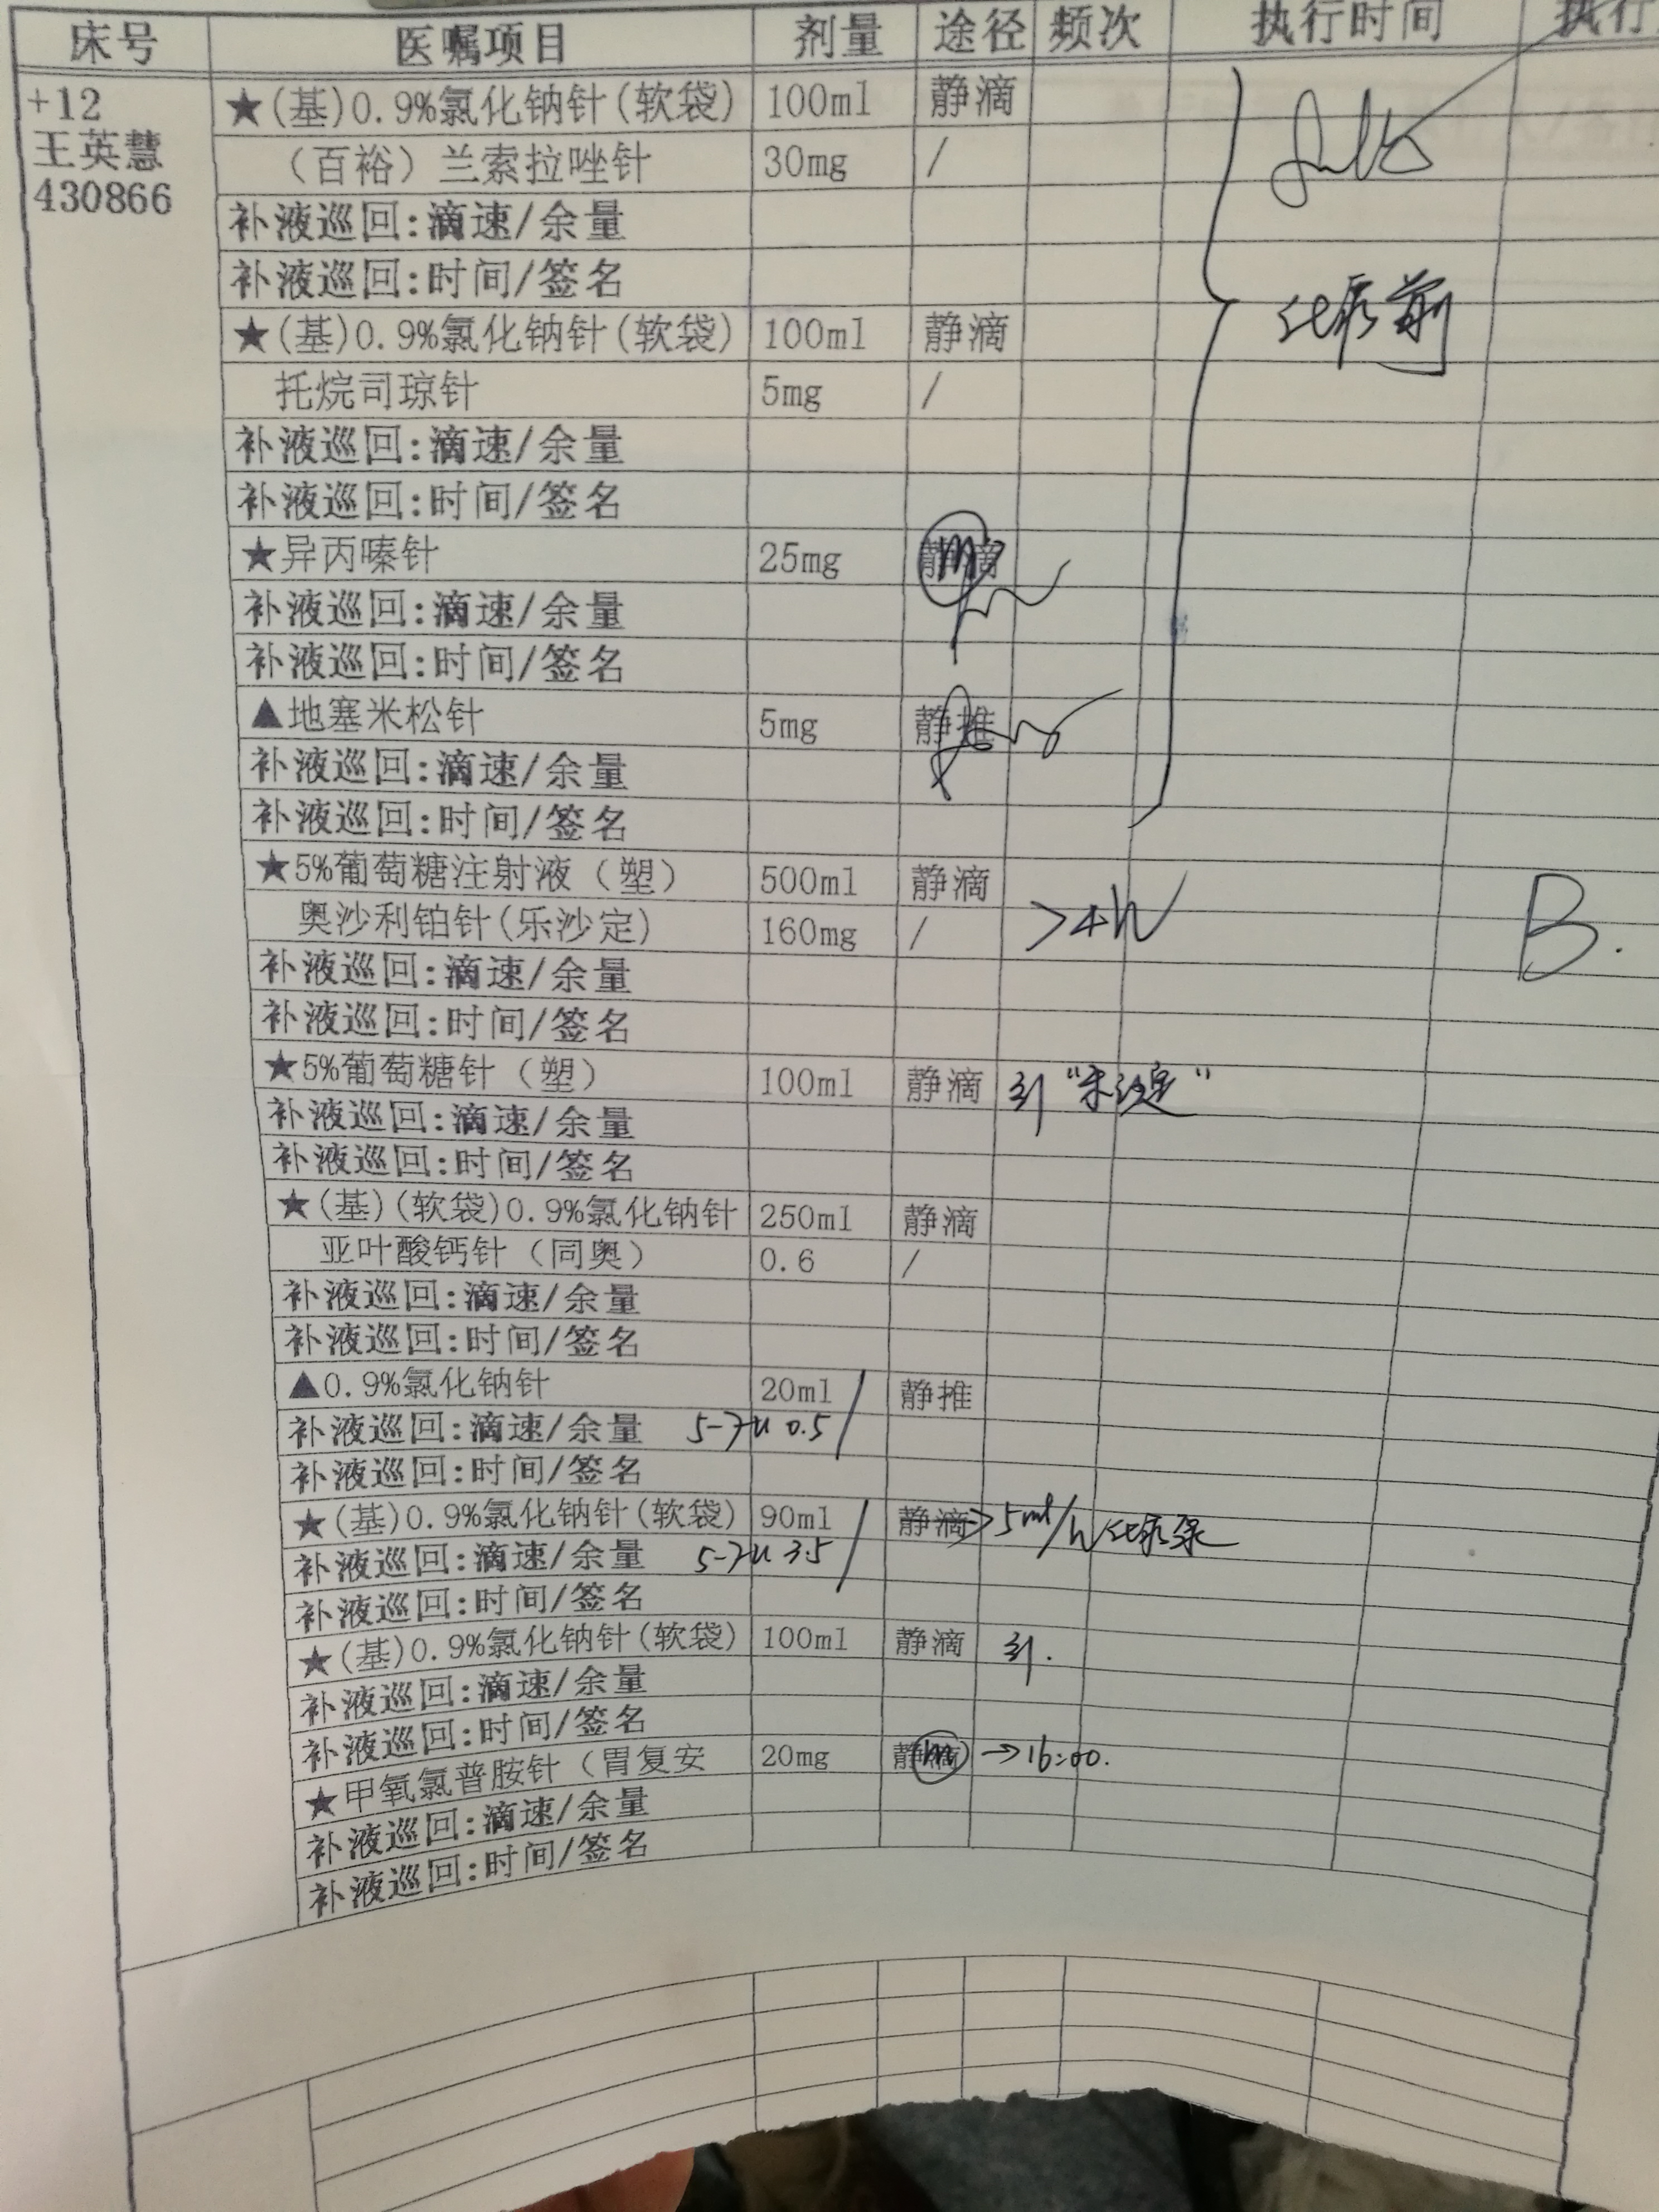 床号 医嘱项目 剂量 途径 频次 执行时间 执行
+12 ★(基)0.9%氯化钠针(软袋) 100ml 静滴
王英慧 （百裕）兰索拉唑针 30mg /
430866 补液巡回:滴速/余量
补液巡回:时间/签名 化疗前
★(基)0.9%氯化钠针(软袋) 100ml 静滴
托烷司琼针 5mg /
补液巡回:滴速/余量
补液巡回:时间/签名
★异丙嗪针 25mg 静滴 m
补液巡回:滴速/余量
补液巡回:时间/签名
▲地塞米松针 5mg 静推
补液巡回:滴速/余量
补液巡回:时间/签名
★5%葡萄糖注射液（塑） 500ml 静滴
奥沙利铂针(乐沙定) 160mg / >4h B.
补液巡回:滴速/余量
补液巡回:时间/签名
★5%葡萄糖针（塑） 100ml 静滴
补液巡回:滴速/余量
补液巡回:时间/签名
★(基)(软袋)0.9%氯化钠针 250ml 静滴
亚叶酸钙针（同奥） 0.6 /
补液巡回:滴速/余量
补液巡回:时间/签名
▲0.9%氯化钠针 20ml 静推
补液巡回:滴速/余量 5-Fu 0.5
补液巡回:时间/签名
★(基)0.9%氯化钠针(软袋) 90ml 静滴 > 5ml/h 化疗泵
补液巡回:滴速/余量 5-Fu 3.5
补液巡回:时间/签名
★(基)0.9%氯化钠针(软袋) 100ml 静滴
补液巡回:滴速/余量
补液巡回:时间/签名
★甲氧氯普胺针（胃复安 20mg 静滴 m →16:00.
补液巡回:滴速/余量
补液巡回:时间/签名